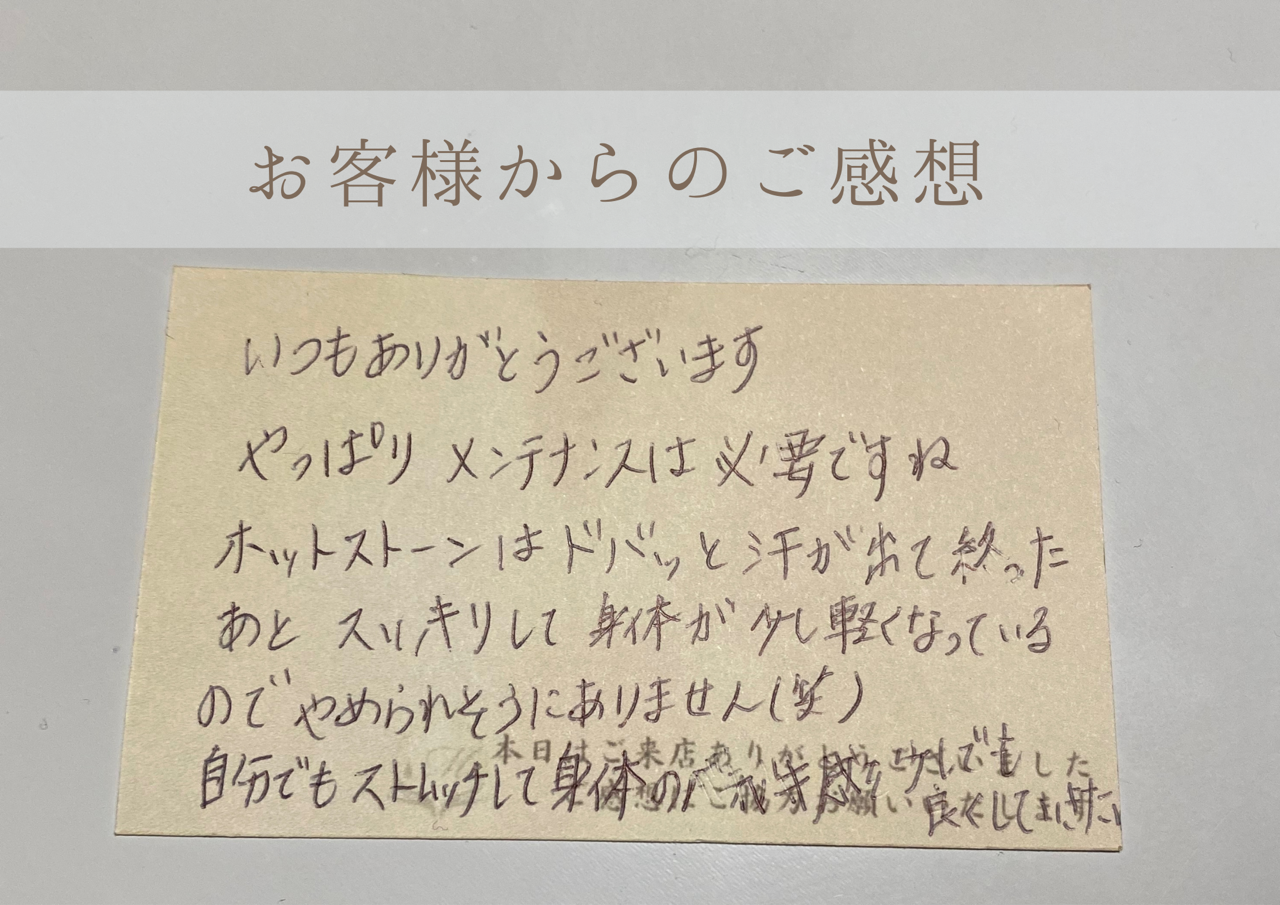 お客様からのご感想
いつもありがとうございます
やっぱり メンテナンスは 必要ですね
ホットストーンは ドバッと 汗が 出て 終った
あと スッキリして 身体が 少し 軽くなっている
のでやめられそうにありません(笑)
本日はご来店ありがとうございました
自分でも ストレッチして 身体の 少しでも
良くして